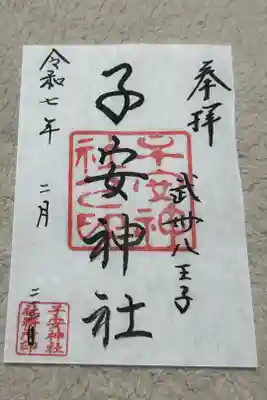 奉拝
武州八王子
子安神社
子安神社之印
令和七年 二月 二
子安神社